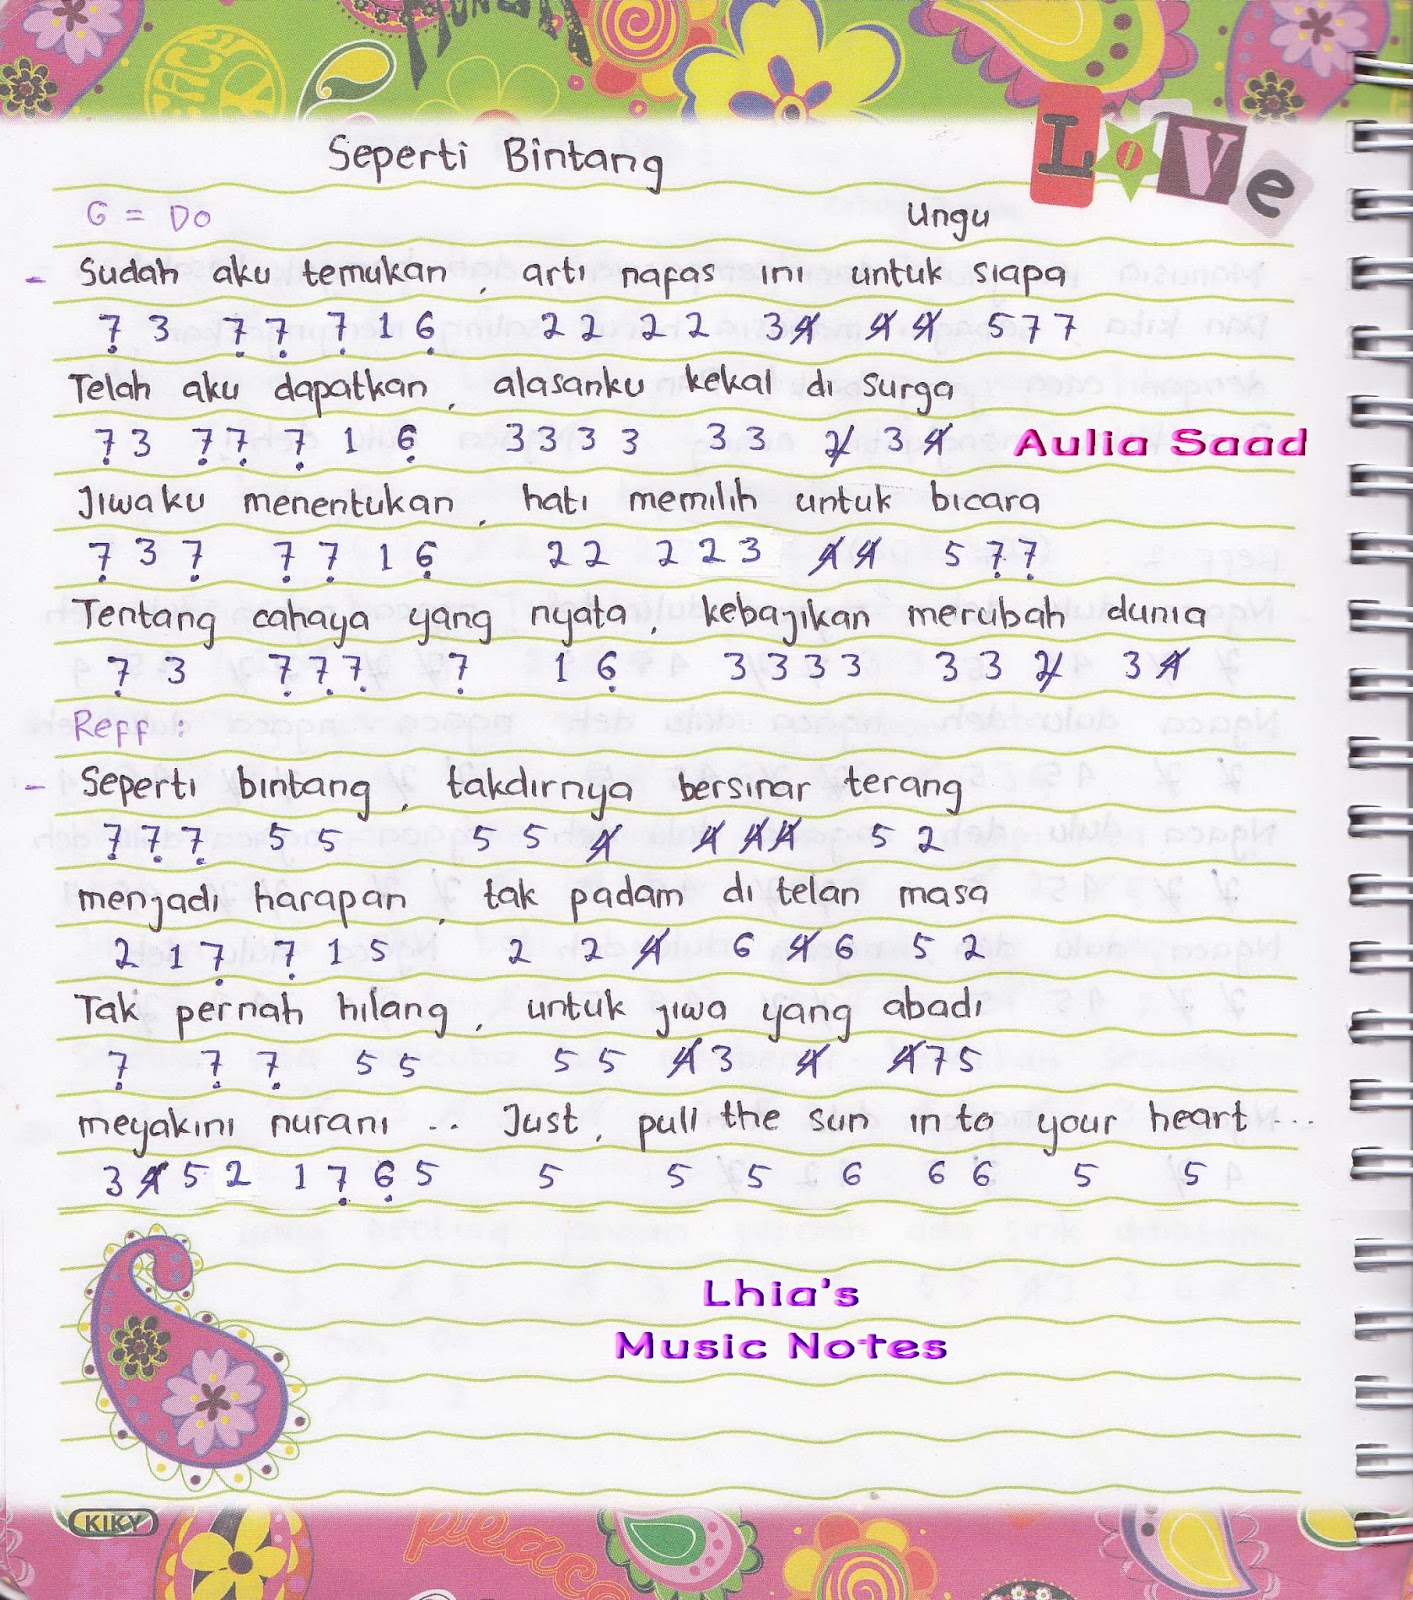 LOVE
Seperti Bintang
G = DO Ungu
- Sudah aku temukan, arti nafas ini untuk siapa
7̣ 3 7̣ 7̣ 7̣ 1 6̣ 2 2 2 2 3 4̸ 4̸ 4̸ 5 7 7
Telah aku dapatkan, alasanku kekal di surga
7̣ 3 7̣ 7̣ 7̣ 1 6̣ 3 3 3 3 3 3 2̸ 3 4̸
Aulia Saad
Jiwaku menentukan, hati memilih untuk bicara
7̣ 3 7̣ 7̣ 7̣ 1 6̣ 2 2 2 2 3 4̸ 4̸ 5 7̣ 7̣
Tentang cahaya yang nyata, kebajikan merubah dunia
7̣ 3 7̣ 7̣ 7̣ 7̣ 1 6̣ 3 3 3 3 3 3 2̸ 3 4̸
Reff :
- Seperti bintang, takdirnya bersinar terang
7̣ 7̣ 7̣ 5 5 5 5 4̸ 4̸ 4̸ 4̸ 5 2
menjadi harapan, tak padam di telan masa
2 1 7̣ 7̣ 1 5 2 2 4̸ 6 4̸ 6 5 2
Tak pernah hilang, untuk jiwa yang abadi
7̣ 7̣ 7̣ 5 5 5 5 4̸ 3 4̸ 4̸ 7 5
meyakini nurani ... Just, pull the sun in to your heart ...
3 4̸ 5 2 1 7̣ 6̣ 5 5 5 5 6 6 6 5 5
Lhia's
Music Notes
KIKY